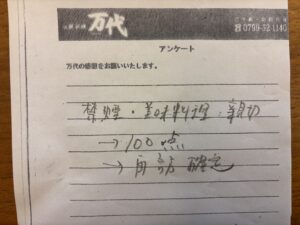 万代
☎0799-32-1140
アンケート
万代の感想をお願いいたします。
禁煙・美味料理・親切
→100点
→再訪確定